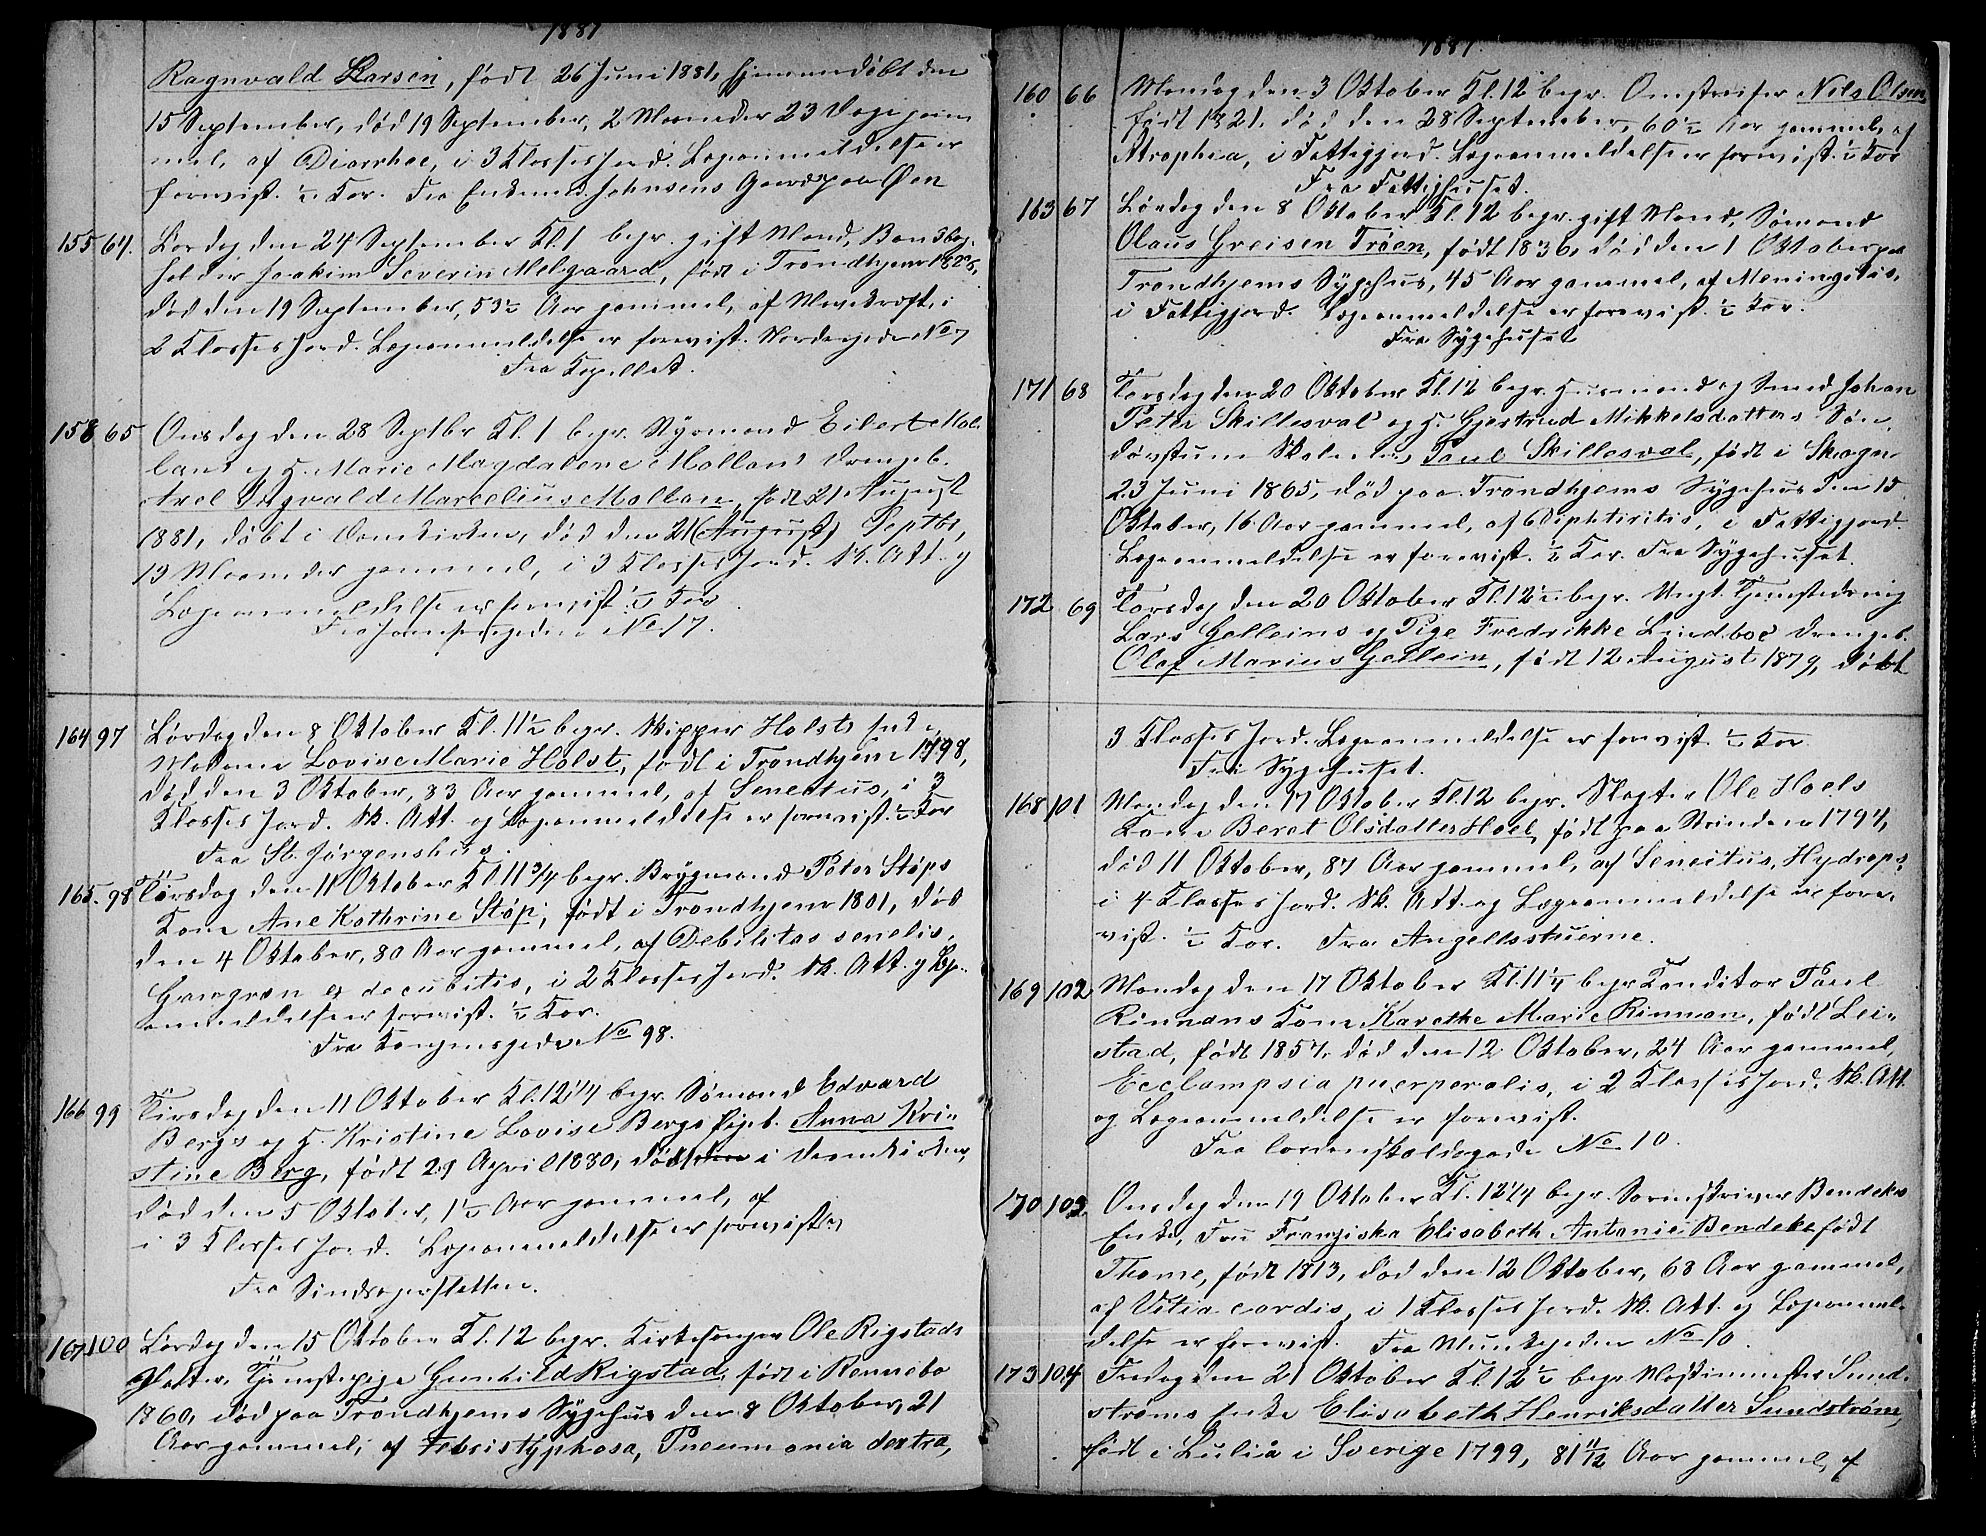 1881
Ragnvald Larsen, født 26 Juni 1881, hjemmedøbt den
15 September, død 19 September, 2 Maaneder 23 Dage gam
mel, af Diarrhoe, i 3 Klasses Jord. Lægeanmeldelse er
forevist. ½ Kor. Fra Enkemd. Johnsens Gaard paa Øen
155 64. Lørdag den 24 September Kl. 1 begr. gift Mand,
holder Joakim Severin Melgaard, født i Trondhjem 1828,
død den 19 September, 53½ Aar gammel, af Mavekræft, i
2 Klasses Jord. Lægeanmeldelse er forevist. Nordregade No 7
Fra Kapellet.
158 65 Onsdag den 28 Septbr Kl. 1 begr. Styrmand Eilert Mol-
lans og H. Marie Magdalene Mollans Drengeb.
Axel Sigvald Marcelius Mollan, født 21 August
1881, døbt i Domkirken, død den 21 (August) Septbr,
13 Maaneder gammel, i 3 Klasses Jord. Sk. Att. og
Lægeanmeldelse er forevist. ½ Kor
No 17.
164 97 Lørdag den 8 Oktober Kl. 11½ begr. Skipper Holsts Enke
Madame Lovise Marie Holst, født i Trondhjem 1798,
død den 3 Oktober, 83 Aar gammel, af Senectus, i 3
Klasses Jord. Sk. Att. og Lægeanmeldelse er forevist. ½ Kor
Fra St. Jørgenshus.
165. 98 Tirsdag den 11 Oktober Kl. 11¾ begr. Brygmand Peter Støps
Kone Ane Kathrine Støp, født i Trondhjem 1801, død
den 4 Oktober, 80 Aar gammel, af Debilitas senelis,
Gangræn og decubitis, i 2 Klasses Jord. Sk. Att. og Læge-
anmeldelse er forevist. ½ Kor.
Fra Kongensgade No 98.
166 99 Tirsdag den 11 Oktober Kl. 12¼ begr. Sømand Edvard
Bergs og H. Kristine Lovise Bergs Pigeb. Anna Kri-
stine Berg, født 29 April 1880, døbt i Domkirken,
død den 5 Oktober, 1½ Aar gammel, af
i 3 Klasses Jord. Lægeanmeldelse er forevist
Fra Sindsygerstatten.
167 100 Lørdag den 15 Oktober Kl. 12 begr. Kirkesanger Ole Rigstads
Datter, Tjenestepige Gunhild Rigstad, født i Rennebo
1860, død paa Trondhjems Sygehus den 8 Oktober, 21
Aar gammel, af Febris typhosa, Pneumonia dextra,
1881.
160 66 Mandag den 3 Oktober Kl. 12 begr. Omstreifer Nils Olsen,
født 1821, død den 28 September, 60½ Aar gammel, af
Atrophia, i Fattigjord. Lægeanmeldelse er forevist. ½ Kor
Fra Fattighuset.
163 67 Lørdag den 8 Oktober Kl. 12 begr. gift Mand, Sømand
Olaus Greisen Trøen, født 1836, død den 1 Oktober paa
Trondhjems Sygehus, 45 Aar gammel, af Meningitis,
i Fattigjord. Lægeanmeldelse er forevist. ½ Kor.
Fra Sygehuset
171 68 Torsdag den 20 Oktober Kl. 12 begr. Husmand og Smed Johan
Peter Skillesval og H. Gjertrud Mikkelsdatters Søn,
Døvstum Skoleelev Paul Skillesval, født i Skogn
23 Juni 1865, død paa Trondhjems Sygehus den 15
Oktober, 16 Aar gammel, af Diphtiritis, i Fattigjord.
Lægeanmeldelse er forevist. ½ Kor. Fra Sygehuset.
172 69 Torsdag den 20 Oktober Kl. 12½ begr. Ungk. Tjenestedreng
Lars Galleins og Pige Fredrikke Lindboe Drengeb.
Olaf Marius Gallein, født 12 August 1879, døbt
3 Klasses Jord. Lægeanmeldelse er forevist. ½ Kor.
Fra Sygehuset.
168 101 Mandag den 17 Oktober Kl. 12 begr. Slagter Ole Hoels
Kone Beret Olsdatter Hoel, født paa Strinden 1794,
død 11 Oktober, 87 Aar gammel, af Senectus, Hydrops,
i 4 Klasses Jord. Sk. Att. og Lægeanmeldelse er fore-
vist. ½ Kor. Fra Angellsstuerne.
169 102 Mandag den 17 Oktober Kl. 11¼ begr. Konditor Paul
Rinnans Kone Karethe Marie Rinnan, født Lei-
stad, født 1857, død den 12 Oktober, 24 Aar gammel,
Ecclampsia puerperalis, i 2 Klasses Jord. Sk. Att.
og Lægeanmeldelse er forevist.
Fra Tordenskjoldsgade No 10.
170 103. Onsdag den 19 Oktober Kl. 12¼ begr. Sorenskriver Bendekes
Enke, Fru Franziska Elisabeth Antonie Bendeke, født
Thome, født 1813, død den 12 Oktober, 68 Aar gammel,
af Vitia cordis, i 1 Klasses Jord. Sk. Att. og Lægeanmel-
delse er forevist. Fra Munkegaden No 10.
173 104 Fredag den 21 Oktober Kl. 12½ begr. Maskinmester Sund-
strøms Enke Elisabeth Henriksdatter Sundstrøm,
født i Luliå i Sverige 1799, 81 11/12 Aar gammel, af